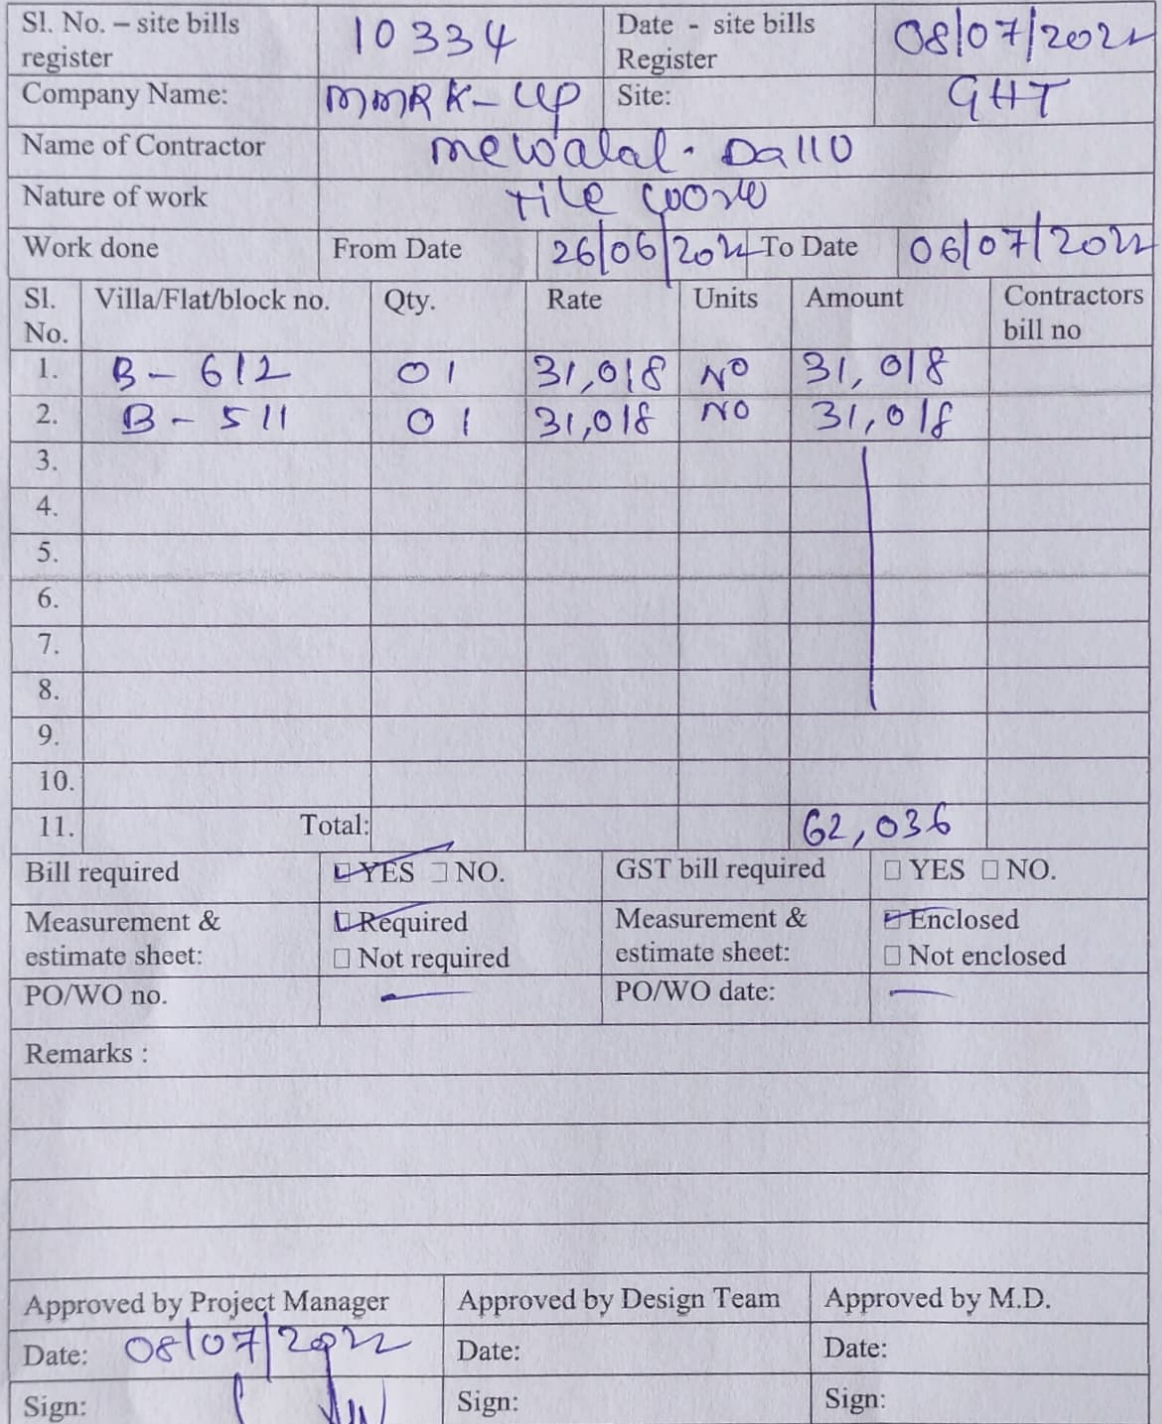 Sl. No. – site bills register 10334 Date - site bills Register 08/07/2022
Company Name: MMRK-UP Site: GHT
Name of Contractor Mewalal. Dallo
Nature of work Tile work
Work done From Date 26/06/2022 To Date 06/07/2022
Sl. No. Villa/Flat/block no. Qty. Rate Units Amount Contractors bill no
1. B - 612 01 31,018 NO 31,018
2. B - 511 01 31,018 NO 31,018
3.
4.
5.
6.
7.
8.
9.
10.
11. Total: 62,036
Bill required YES NO. GST bill required YES NO.
Measurement & estimate sheet: Required Not required Measurement & estimate sheet: Enclosed Not enclosed
PO/WO no. — PO/WO date: —
Remarks :
Approved by Project Manager Approved by Design Team Approved by M.D.
Date: 08/07/2022 Date: Date:
Sign: Sign: Sign: